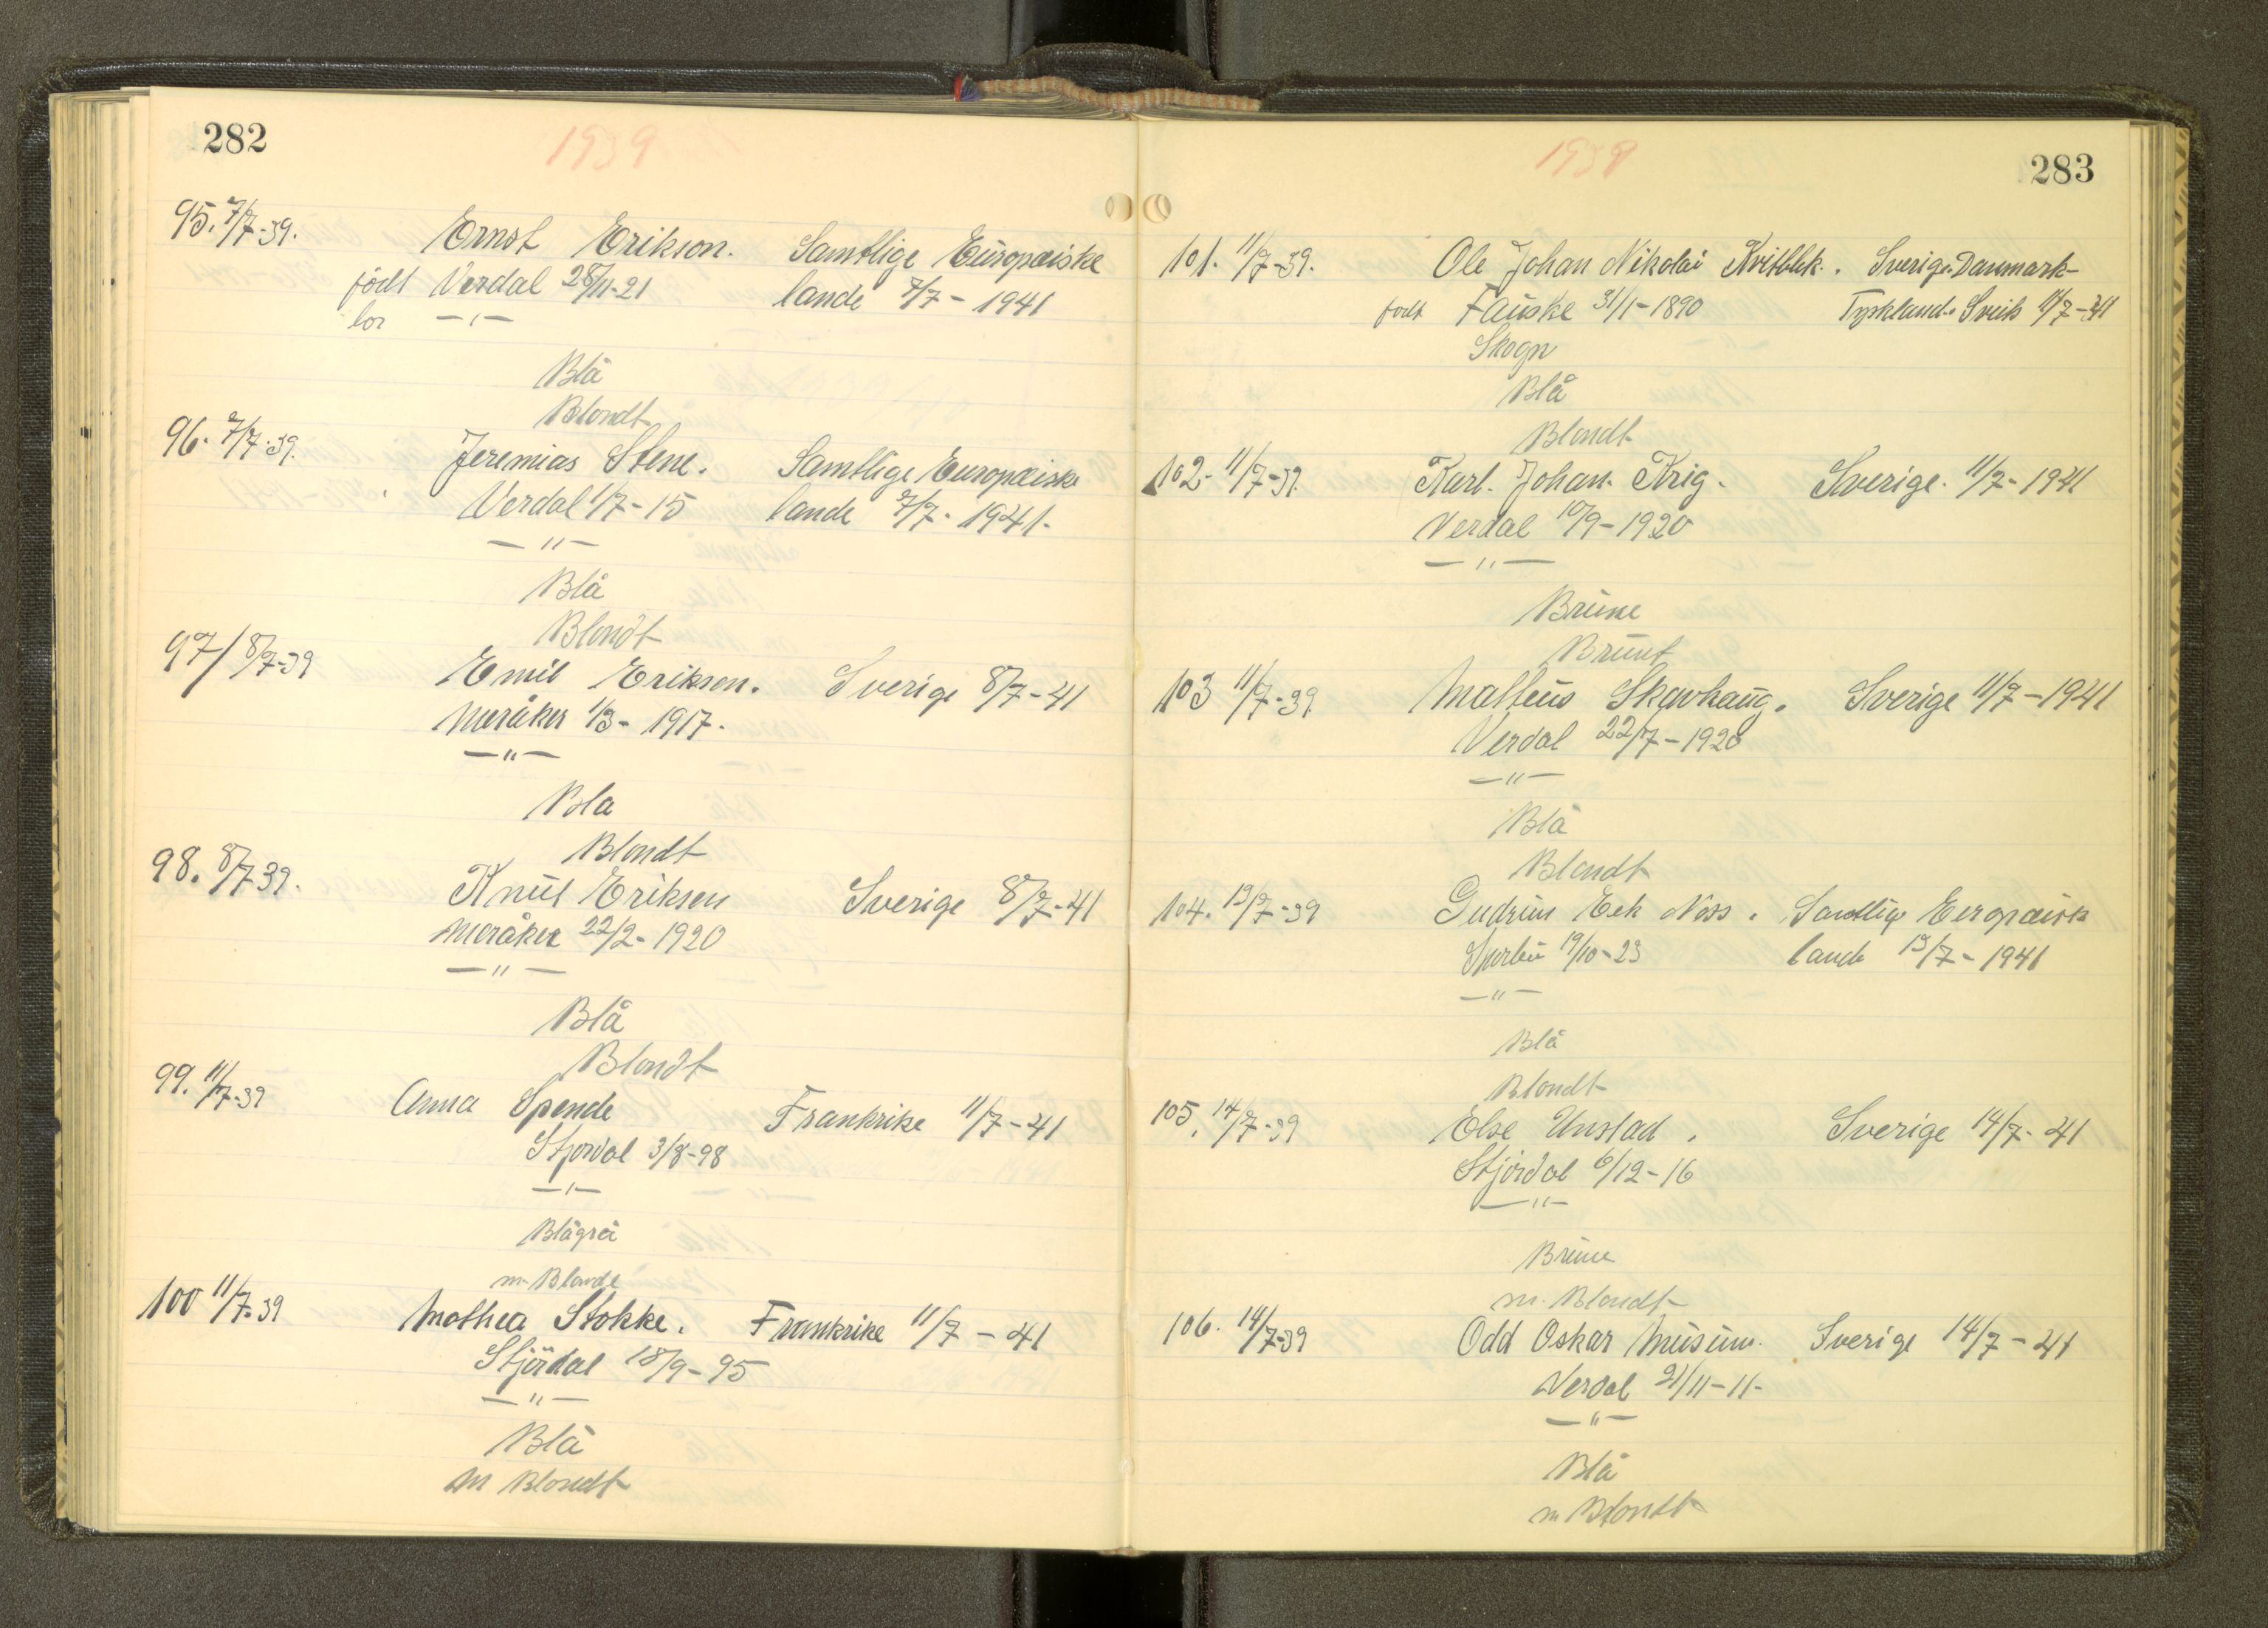 282
1939
95. 7/7-39.
Ernst Erikson. Samtlige Europæiske
født Verdal 28/11-21 lande 7/7 - 1941
bor —〃—
Blå
Blondt
96. 7/7-39.
Jeremias Stene. Samtlige Europæiske
Verdal 1/7-15 lande 7/7- 1941.
—〃—
Blå
Blondt
97/ 8/7-39
Emil Eriksen. Sverige 8/7-41
Meråker 1/3- 1917.
—〃—
Bla
Blondt
98. 8/7 39.
Knut Eriksen Sverige 8/7-41
Meråker 22/2- 1920
—〃—
Blå
Blondt
99. 11/7-39
Anna Spende Frankrike 11/7-41
Stjørdal 3/8-98
—〃—
Blågrå
m. Blonde
100 11/7-39
Mathea Stokke. Frankrike 11/7 - 41
Stjørdal 18/9-95
—〃—
Blå
m Blondt
283
1939
101. 11/7-39.
Ole Johan Nikolai . Sverige-Danmark-
født Fauske 31/1-1890 Tyskland. 11/7-41
Skogn
Blå
Blondt
102- 11/7-39.
Karl. Johan. Krig. Sverige. 11/7-1941
Verdal 10/9-1920
—〃—
Brune
Brunt
103 11/7-39
Matteus Skavhaug. Sverige 11/7-1941
Verdal 22/7-1920
—〃—
Blå
Blondt
104. 13/7-39
Gudrun Eek Næss. Samtlige Eeropæisk
Sparbu 19/10-23 lande 13/7-1941
—〃—
Blå
Blondt
105. 14/7-39
Else Unstad. Sverige 14/7-41
Stjørdal 6/12-16
—〃—
Brune
m. Blondt
106. 14/7-39
Odd Oskar Musum. Sverige 14/7-41
Verdal 21/11-11-
—〃—
Blå
m Blondt